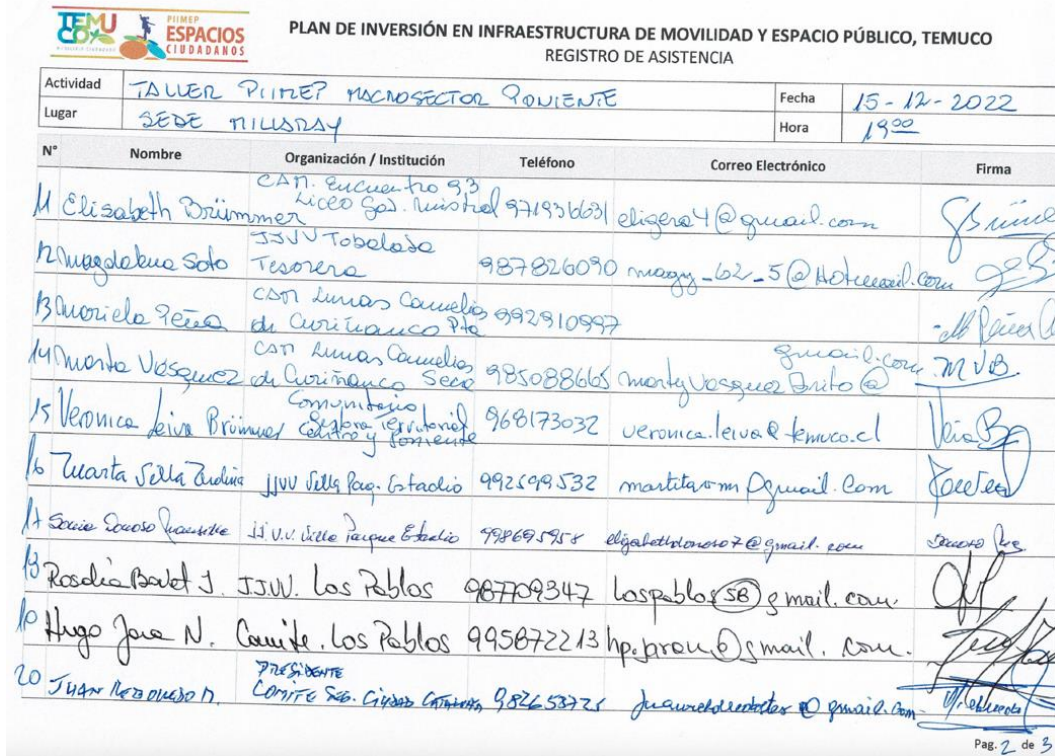 TEMUCO
PIIMEP
ESPACIOS
CIUDADANOS
PLAN DE INVERSIÓN EN INFRAESTRUCTURA DE MOVILIDAD Y ESPACIO PÚBLICO, TEMUCO
REGISTRO DE ASISTENCIA
Actividad TALLER PIIMEP MACROSECTOR PONIENTE Fecha 15-12-2022
Lugar SEDE MILLARAY Hora 19:00
N° Nombre Organización / Institución Teléfono Correo Electrónico Firma
11 Elisabeth Brümmer CAM. Encuentro 93 Liceo Gab. Mistral 971936631 eligera4@gmail.com
12 Magdalena Soto JJVV Tobalaba Tesorera 987826090 magy_62_5@Hotmail.com
13 Mariela Peña CAM Lunas Camelias de Curiñanco Pta 992910997
14 Marta Vásquez CAM Lunas Camelias de Curiñanco Secr 985088665 martyvasquezbrito@gmail.com M V B.
15 Veronica Leiva Brümmer Comunitario Gestora Territorial Centro y Poniente 968173032 veronica.leiva@temuco.cl
16 Marta Silla JJVV Villa Parq. Estadio 992599532 @gmail.com
17 Sonia Donoso JJ.V.V. Villa Parque Estadio 998695958 elizabethdonoso7@gmail.com
18 Rosalia Bavet J. JJVV. Los Pablos 987709347 Lospablos58@gmail.com.
19 Hugo Jara N. Comite. Los Pablos 995872213 hp.jaram@gmail.com.
20 JUAN REBOLLEDO M. PRESIDENTE COMITE SEG. CIUDAD 982653725 @gmail.com
Pag. 2 de 3